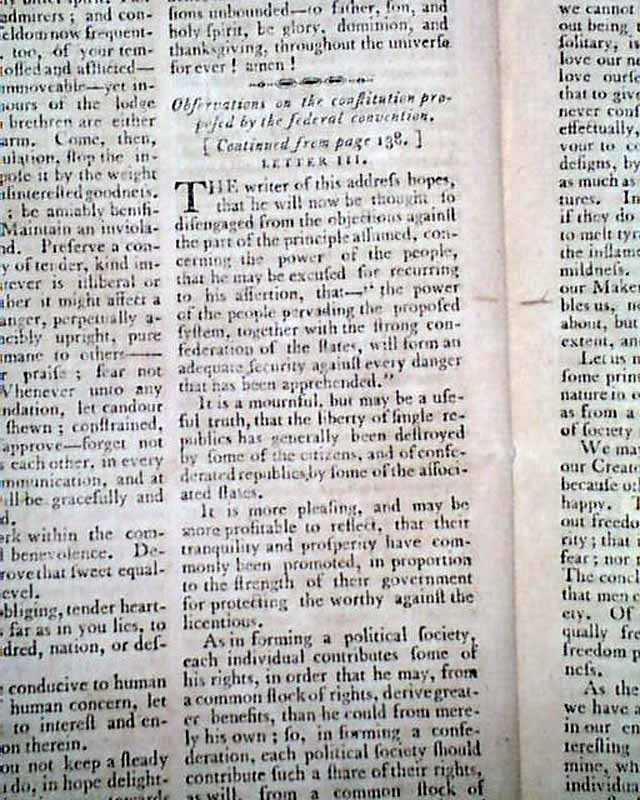 admirers ; and con-
seldom now frequent-
too, of your tem-
tossed and afflicted—
immoveable—yet in-
hours of the lodge
brethren are either
arm. Come, then,
ulation, stop the in-
pole it by the weight
isinterested goodness.
; be amiably benifi-
Maintain an inviola-
nd. Preserve a con-
y of tender, kind im-
atever is illiberal or
aher it might affect a
anger, perpetually a-
ncibly upright, pure
umane to others—
r praise ; fear not
Whenever unto any
ndation, let candour
shewn ; constrained,
approve—forget not
s each other, in every
mmunication, and at
will be gracefully and
d.
erk within the com-
d benevolence. De-
rove that sweet equal-
evel.
obliging, tender heart-
s far as in you lies, to
dred, nation, or def-
e conducive to human
f human concern, let
to interest and en-
on therein.
ou not keep a steady
do, in hope delight-
towards
sions unbounded—to father, son, and
holy spirit, be glory, dominion, and
thanksgiving, throughout the universe
for ever ! amen !
Observations on the constitution pro-
posed by the federal convention.
[ Continued from page 138. ]
LETTER III.
THE writer of this address hopes,
that he will now be thought so
disengaged from the objections against
the part of the principle assumed, con-
cerning the power of the people,
that he may be excused for recurring
to his assertion, that—" the power
of the people pervading the proposed
system, together with the strong con-
federation of the states, will form an
adequate security against every danger
that has been apprehended."
It is a mournful, but may be a use-
ful truth, that the liberty of single re-
publics has generally been destroyed
by some of the citizens, and of confe-
derated republics, by some of the associ-
ated states.
It is more pleasing, and may be
more profitable to reflect, that their
tranquility and prosperity have com-
monly been promoted, in proportion
to the strength of their government
for protecting the worthy against the
licentious.
As in forming a political society,
each individual contributes some of
his rights, in order that he may, from
a common stock of rights, derive great-
er benefits, than he could from mere-
ly his own ; so, in forming a confe-
deration, each political society should
contribute such a share of their rights,
as will, from a common stock of
we cannot
out being
solitary, i
love our ne
love ourse
that to give
never con
effectually,
vour to c
designs, by
as much as
tures. In
if they do
to melt tyr
the inflame
mildness.
our Maker
bles us, n
about, but
extent, an
Let us m
some prin
nature to
as from a
of society
We may
our Creat
because oth
happy.
out freedo
rity ; that
fear ; nor
The concl
that men c
ety. Of
qually fre
freedom p
ness.
As the
we have a
in our en
teresting
mine, wh
individu